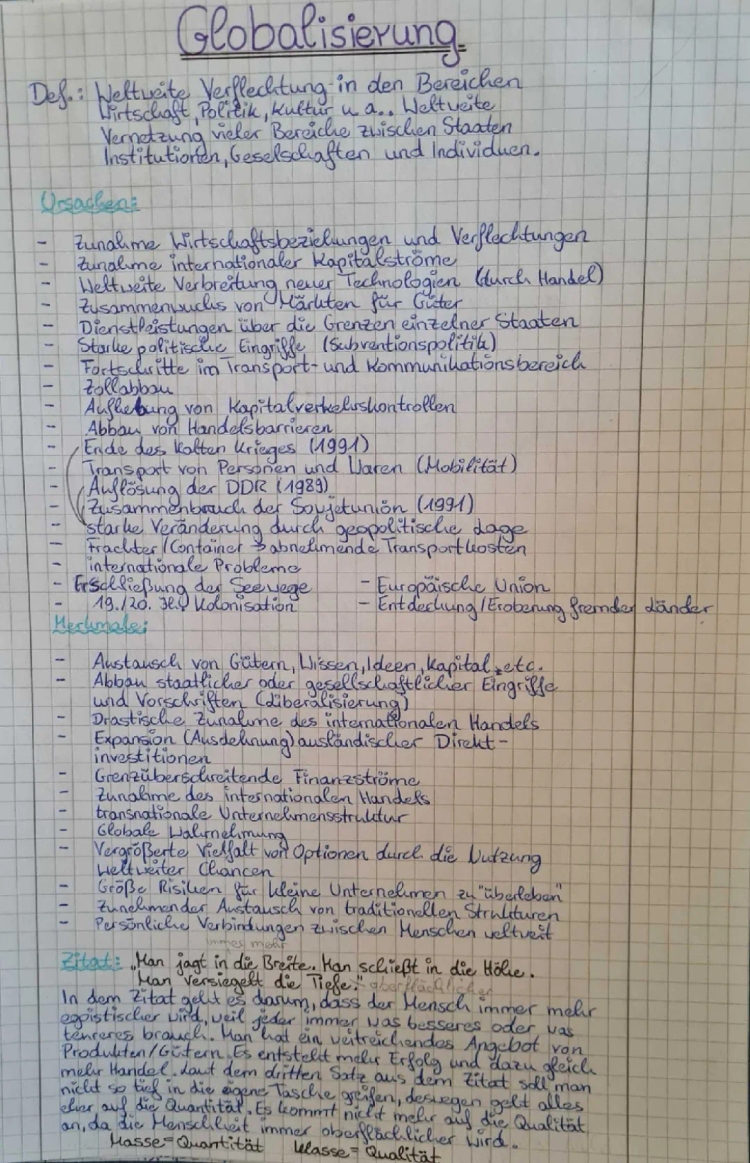 Globalisierung
Def.: Weltweite Verflechtung in den Bereichen
Wirtschaft, Politik, Kultur u.a.. Weltweite
Vernetzung vieler Bereiche zwischen Staaten
Institutionen, Geselschaften und Individuen.
Ursachen:
- Zunahme Wirtschaftsbeziehungen und Verflechtungen
- Zunahme internationaler Kapitalströme
- Weltweite Verbreitung neuer Technologien (durch Handel)
- Zusammenwuchs von Märkten für Güter
- Dienstleistungen über die Grenzen einzelner Staaten
- Starke politische Eingriffe (Subventionspolitik)
- Fortschritte im Transport- und Kommunikationsbereich
- Zollabbau
- Aufhebung von Kapitalverkehrskontrollen
- Abbau von Handelsbarrieren
- Ende des Kalten Krieges (1991)
- Transport von Personen und Waren (Mobilität)
- Auflösung der DDR (1989)
- Zusammenbrauch der Sowjetunion (1991)
- starke Veränderung durch geopolitische Lage
- Frachter/Container → abnehmende Transportkosten
- internationale Probleme
- Erschließung der Seewege - Europäische Union
- 19./20. Jh. Kolonisation - Entdeckung/Eroberung fremder Länder
Merkmale:
- Austausch von Gütern, Wissen, Ideen, Kapital, etc.
- Abbau staatlicher oder gesellschaftlicher Eingriffe
und Vorschriften (Liberalisierung)
- Drastische Zunahme des internationalen Handels
- Expansion (Ausdehnung) ausländischer Direkt-
investitionen
- Grenzüberschreitende Finanzströme
- Zunahme des internationalen Handels
- transnationale Unternehmensstruktur
- Globale Wahrnehmung
- Vergrößerte Vielfalt von Optionen durch die Nutzung
weltweiter Chancen
- Größe Risiken für kleine Unternehmen zu "überleben"
- Zunehmender Austausch von traditionellen Strukturen
- Persönliche Verbindungen zwischen Menschen weltweit
immer mehr
Zitat: „Man jagt in die Breite. Man schießt in die Höhe.
Man versiegelt die Tiefe." oberflächlicher
In dem Zitat geht es darum, dass der Mensch immer mehr
egoistischer wird, weil jeder immer was besseres oder was
teureres brauch. Man hat ein weitreichendes Angebot von
Produkten/Gütern. Es entsteht mehr Erfolg und dazu gleich
mehr Handel. Laut dem dritten Satz aus dem Zitat soll man
nicht so tief in die eigene Tasche greifen, deswegen geht alles
eher auf die Quantität. Es kommt nicht mehr auf die Qualität
an, da die Menschheit immer oberflächlicher wird.
Masse = Quantität Klasse = Qualität